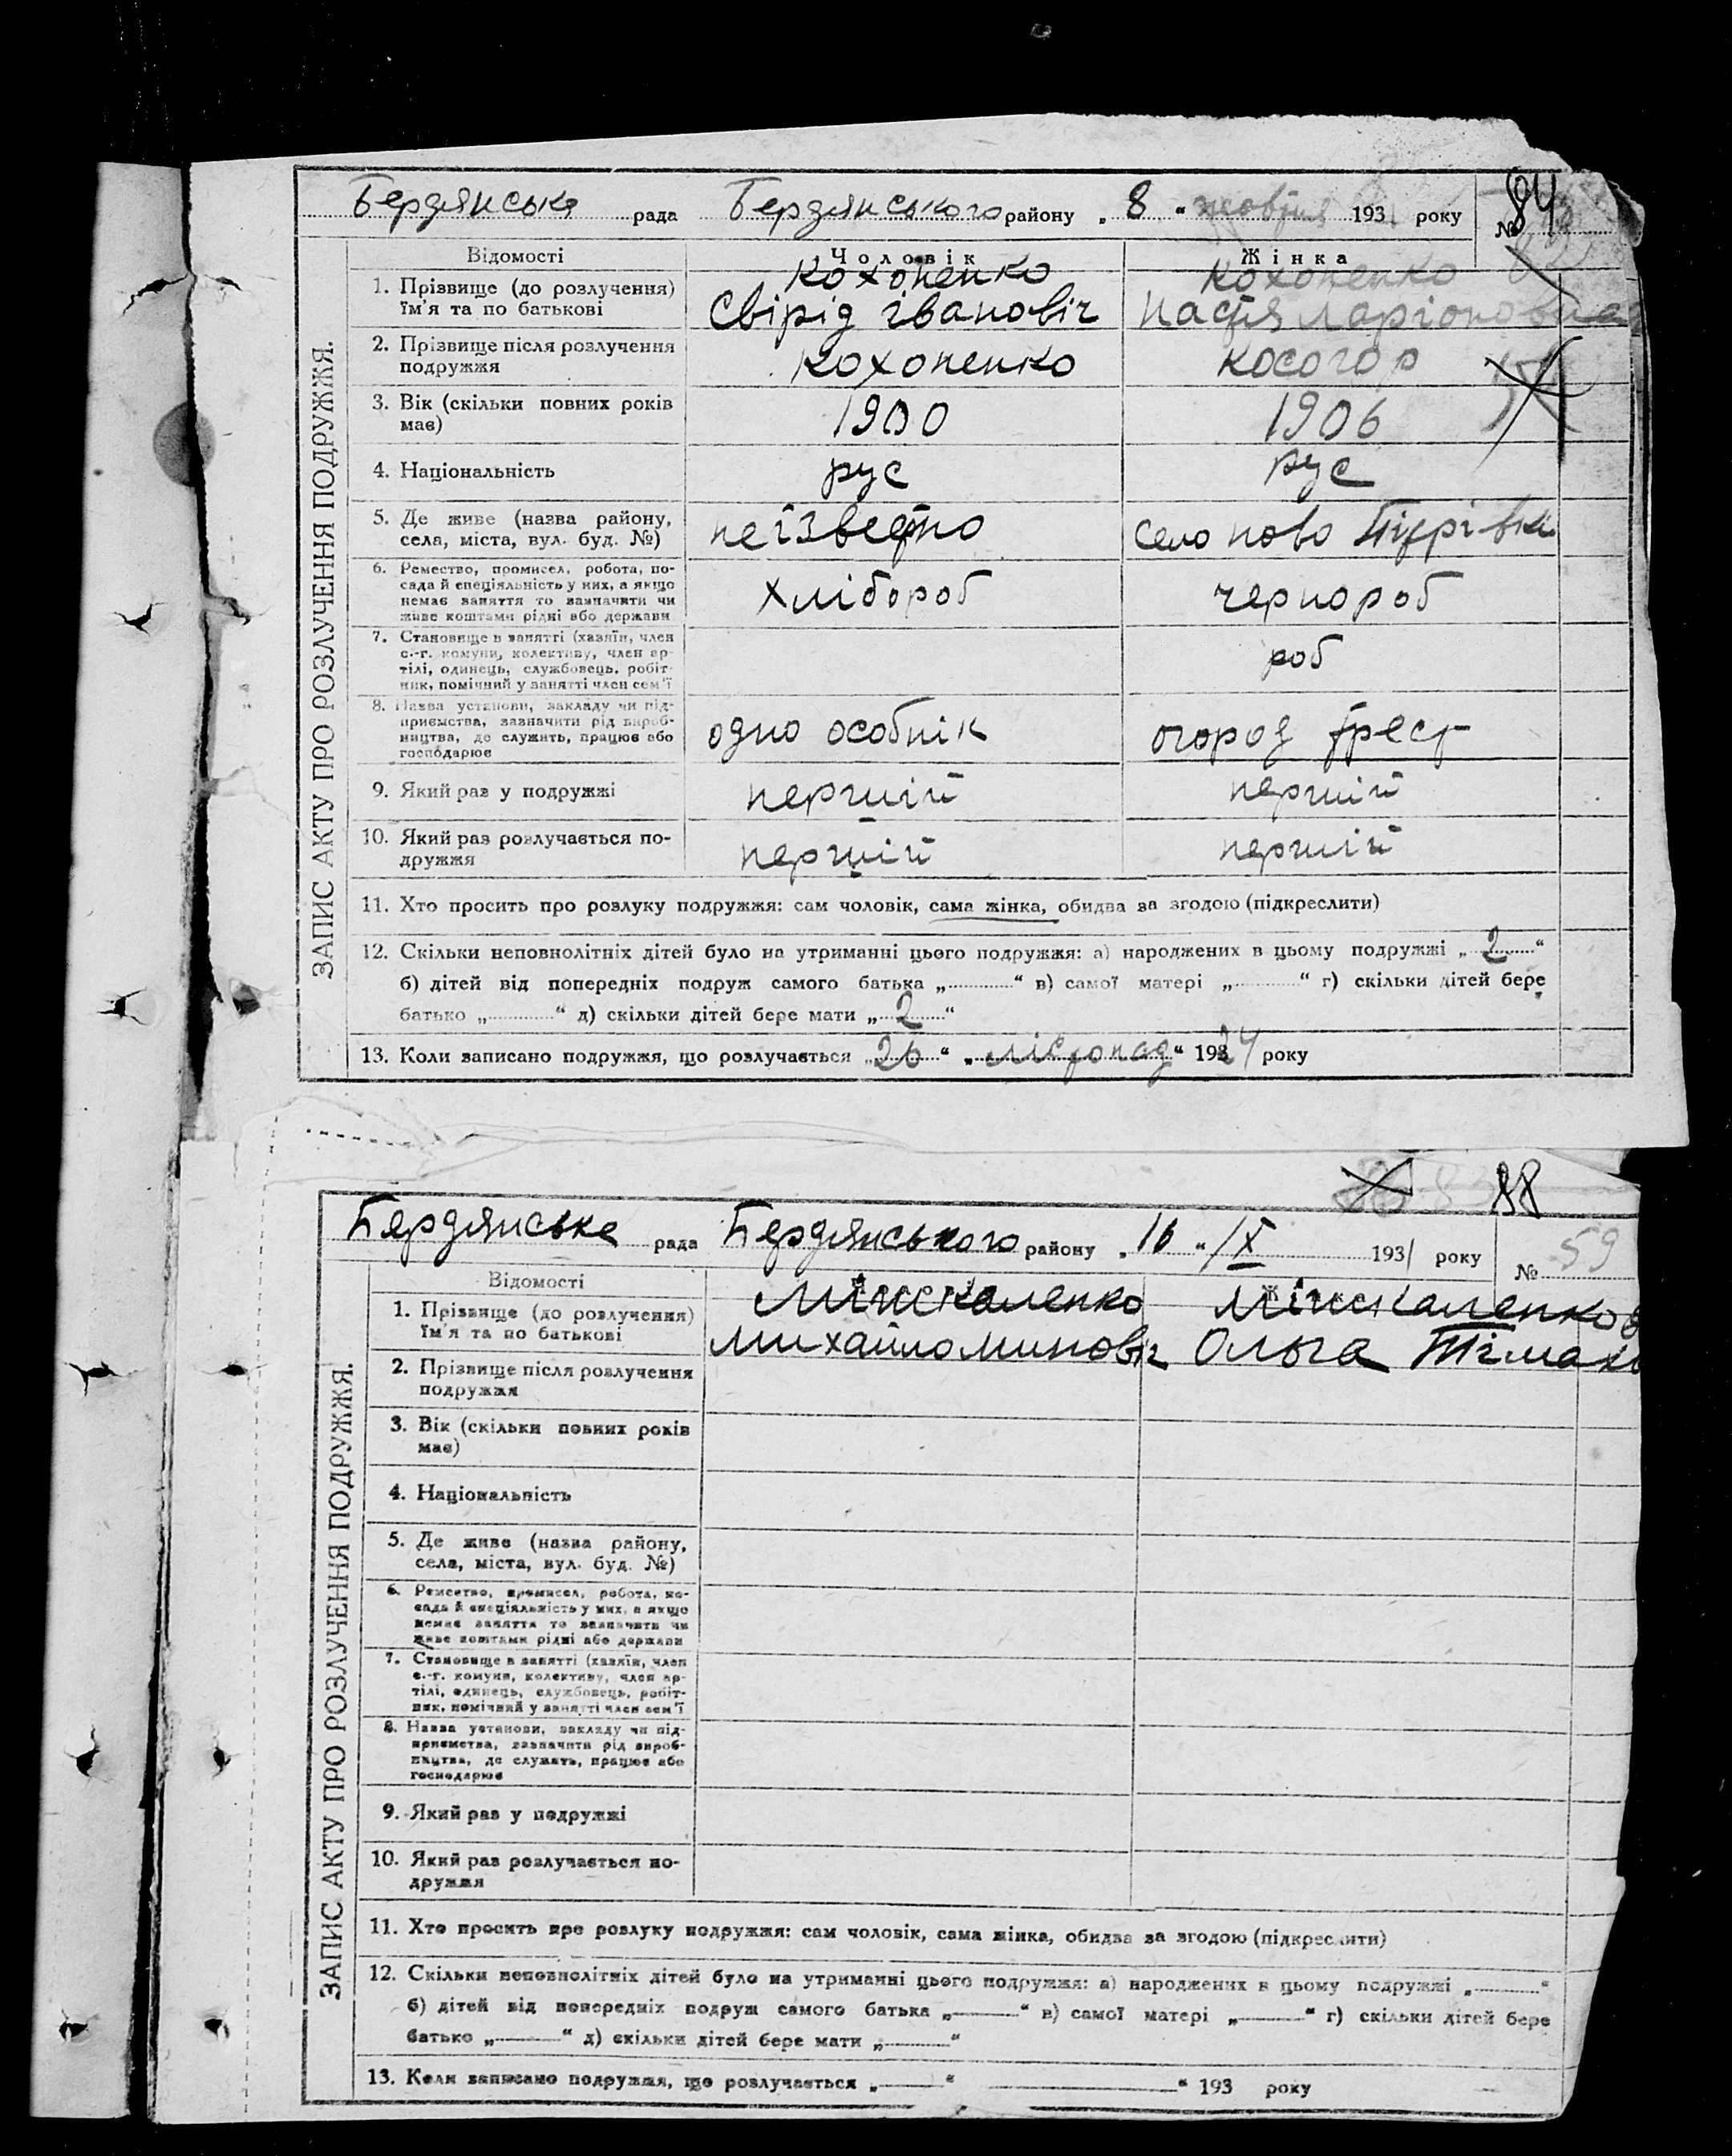 ЗАПИС АКТУ ПРО РОЗЛУЧЕННЯ ПОДРУЖЖЯ.
Бердянська рада Бердянського району „ 8 “ жовтня 193 року № 84
Відомості Чоловік Жінка
1. Прізвище (до розлучення) Кохоненко Кохоненко
ім'я та по батькові Свірід іванович Настя Ларіоновна
2. Прізвище після розлучення Кохоненко Косогор
подружжя
3. Вік (скільки повних років 1900 1906
має)
4. Національність рус рус
5. Де живе (назва району, неізвестно село ново Петрівка
села, міста, вул. буд. №)
6. Ремество, промисел, робота, по-
сада й спеціяльність у них, а якщо хлібороб чернороб
немає заняття то зазначити чи
живе коштами рідні або держави
7. Становище в занятті (хазяїн, член
с.-г. комуни, колективу, член ар- роб
тілі, одинець, службовець, робіт-
ник, помічний у занятті член сем'ї
8. Назва установи, закладу чи під-
приємства, зазначити рід вироб- одно особнік огород трест
ництва, де служить, працює або
господарює
9. Який раз у подружжі першій першій
10. Який раз розлучається по- першій першій
дружжя
11. Хто просить про розлуку подружжя: сам чоловік, сама жінка, обидва за згодою (підкреслити)
12. Скільки неповнолітніх дітей було на утриманні цього подружжя: а) народжених в цьому подружжі „ 2 “
б) дітей від попередніх подруж самого батька „ “ в) самої матері „ “ г) скільки дітей бере
батько „ “ д) скільки дітей бере мати „ 2 “
13. Коли записано подружжя, що розлучається „ 26 “ „ лістопад “ 1924 року
88
ЗАПИС АКТУ ПРО РОЗЛУЧЕННЯ ПОДРУЖЖЯ.
Бердянське рада Бердянського району „ 16 “ /X 1931 року № 59
Відомості
1. Прізвище (до розлучення)
ім'я та по батькові Михайло Минович Ольга
2. Прізвище після розлучення
подружжя
3. Вік (скільки повних років
має)
4. Національність
5. Де живе (назва району,
села, міста, вул. буд. №)
6. Ремество, промисел, робота, по-
сада й спеціяльність у них, а якщо
немає заняття то зазначити чи
живе коштами рідні або держави
7. Становище в занятті (хазяїн, член
с.-г. комуни, колективу, член ар-
тілі, одинець, службовець, робіт-
ник, помічний у занятті член сем'ї
8. Назва установи, закладу чи під-
приємства, зазначити рід вироб-
ництва, де служить, працює або
господарює
9. Який раз у подружжі
10. Який раз розлучається по-
дружжя
11. Хто просить про розлуку подружжя: сам чоловік, сама жінка, обидва за згодою (підкреслити)
12. Скільки неповнолітніх дітей було на утриманні цього подружжя: а) народжених в цьому подружжі „ “
б) дітей від попередніх подруж самого батька „ “ в) самої матері „ “ г) скільки дітей бере
батько „ “ д) скільки дітей бере мати „ “
13. Коли записано подружжя, що розлучається „ “ “ 193 року